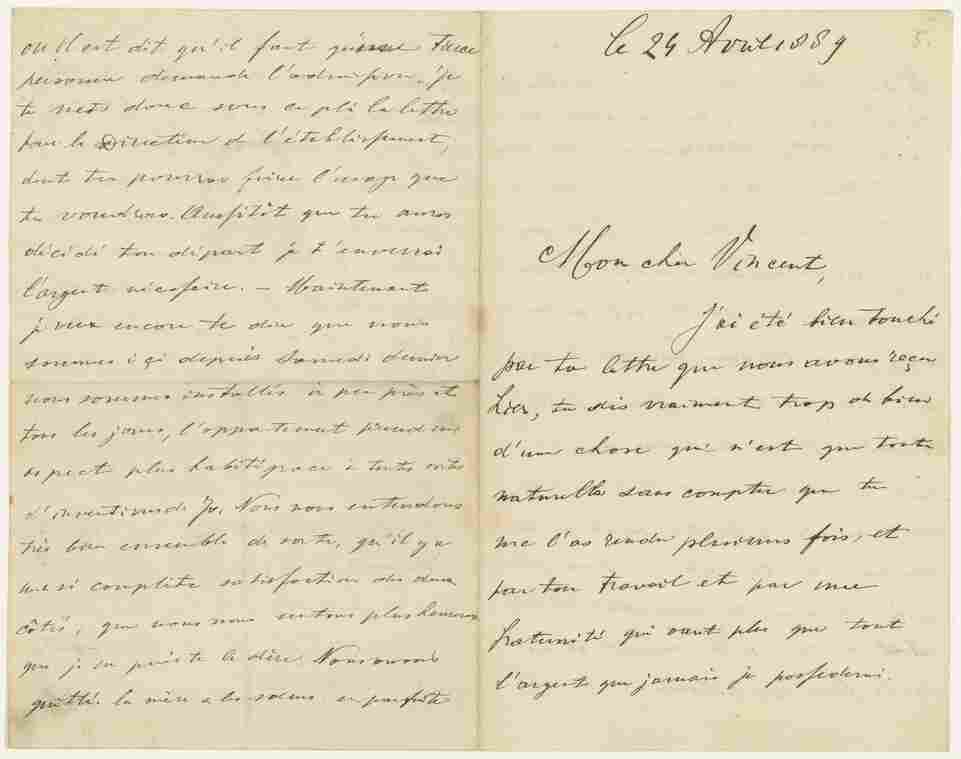 où il est dit qu'il faut qu'une tierce
personne demande l'admission. Je
te mets donc sous ce pli la lettre
pour le Directeur de l'établissement,
dont tu pourras faire l'usage que
tu voudras. Aussitôt que tu auras
décidé ton départ je t'enverrai
l'argent nécessaire. – Maintenant
je veux encore te dire que nous
sommes ici depuis Samedi dernier
nous sommes installés à peu près et
tous les jours, l'appartement prend un
aspect plus habité grace à toute sortes
d'inventions de Jo. Nous nous entendons
très bien ensemble de sorte, qu'il y a
une si complète satisfaction des deux
côtés, que nous nous sentons plus heureux
que je ne puis te le dire. Nous avons
quitté la mère & les soeurs en parfaite
5.
le 24 Avril 1889
Mon cher Vincent,
J'ai été bien touché
par ta lettre que nous avons reçu
hier, tu dis vraiment trop de bien
d'une chose qui n'est que toute
naturelle sans compter que tu
me l'as rendu plusieurs fois, et
par ton travail et par une
fraternité qui vaut plus que tout
l'argent que jamais je posséderai.